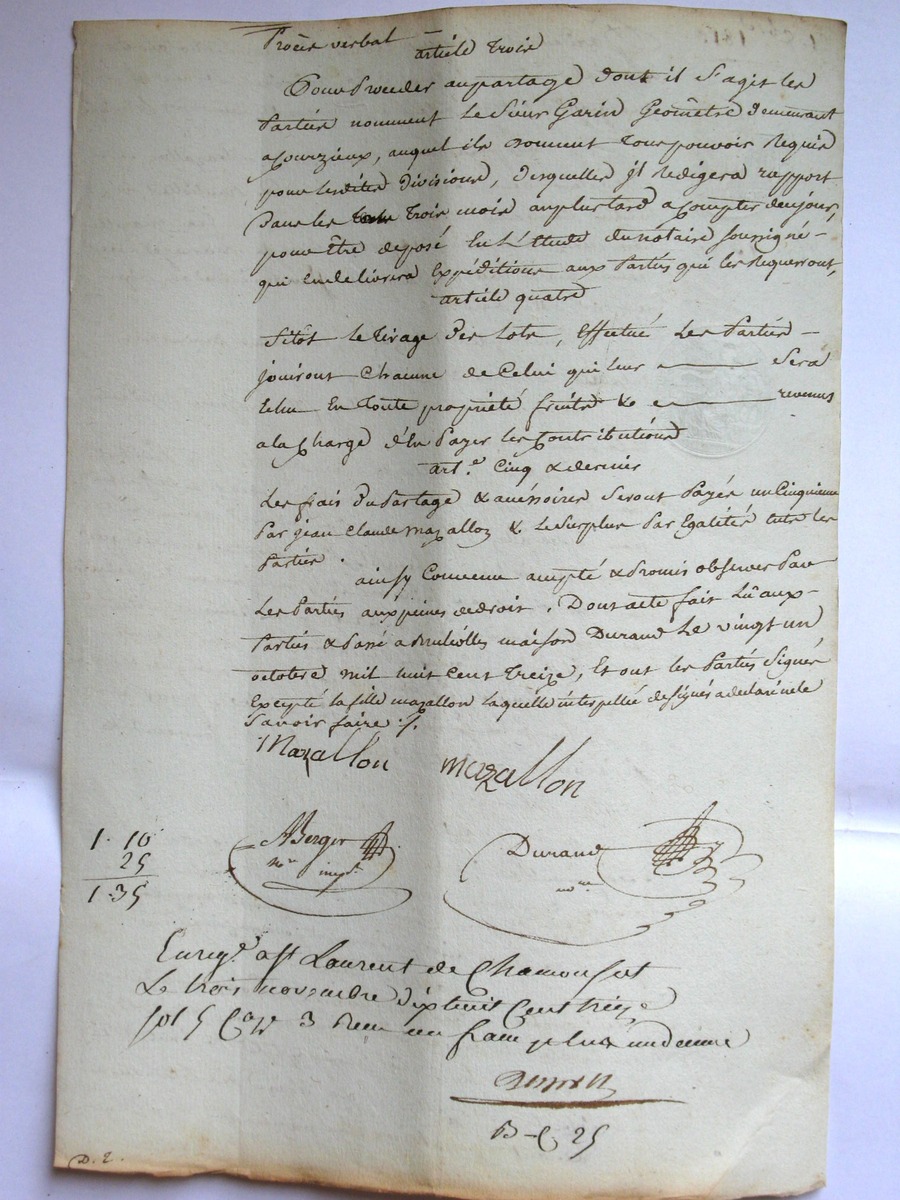 Procès verbal –
article trois
Pour Proceder aupartage dont il S'agit les
Parties nomment le Sieur Garin Géomêtre Demeurant
a Courzieux, auquel ils donnent tous pouvoir Requis
pour lesdites Divisions, Desquelles jl Redigera rapport
Dans les trois mois auplustard a Compter decejour,
pour être deposé En L'Etude dunotaire soussigné –
qui Endelivrera Expéditions aux Parties qui les Requerront,
article quatre
Sitot le Tirage Des Lots, Effectué Les Parties –
jouiront Chacune de Celui qui leur Sera
Echu En toute propriété fruits & revenus
a la Charge d'En Payer les Contributions
art.e Cinq & dernier
Les frais Du Partage & accessoires Seront Payés un Cinquieme
Par jean Claude mazallon & le Surplus Par Egalités entre les
Parties .
ainsy Convenu accepté & Promis observer Par
Les Parties aux peines de droit . Dont acte fait Lû aux –
Parties & Passé a Brulliolles maison Durand Le vingt un
octobre mil huit Cent Treize, Et ont les Parties Signés
Excepté la fille mazallon laquelle interpellée de signer a declaré ne le
Savoir faire ./.
Mazallon mazallon
1. 10
25
1. 35
ABerger
Durand
nore
Enregé a St Laurent de Chamousset
Le trois novembre dixhuit Cent treize
fol 5 Case 3 Recu un franc plus un decime
D – C 25
D. 2.